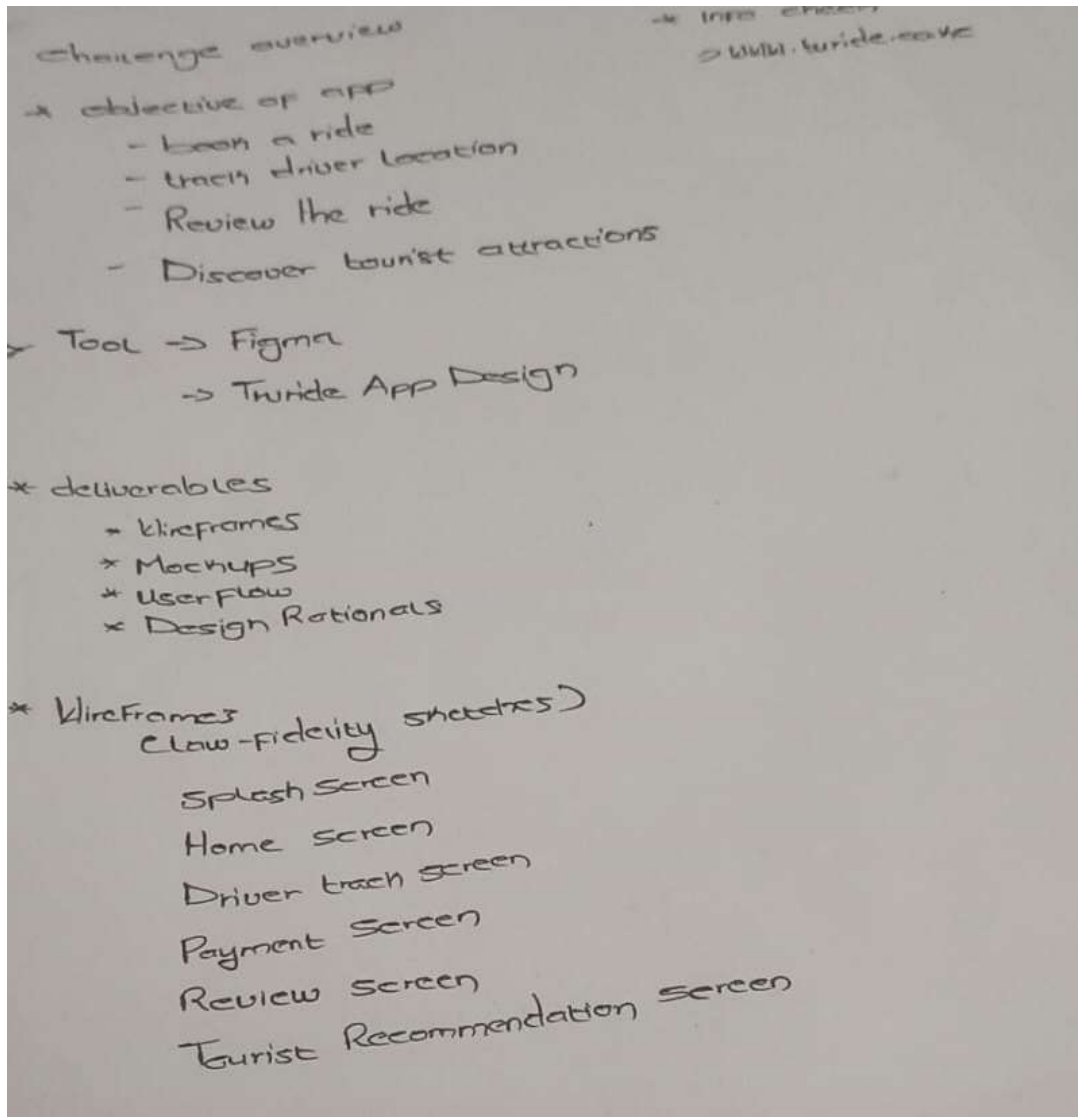 Challenge overview
* Info check
> www.turide.co.ke
* objective of app
- book a ride
- track driver location
- Review the ride
- Discover tourist attractions
> Tool -> Figma
-> Truride App Design
* deliverables
* Wireframes
* Mockups
* User Flow
* Design Rationals
* WireFrames
(Low-fidelity sketches)
Splash Screen
Home screen
Driver track screen
Payment Screen
Review screen
Tourist Recommendation screen